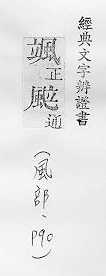 經典文字辨證書
颯正䬃通
(風部、P90)